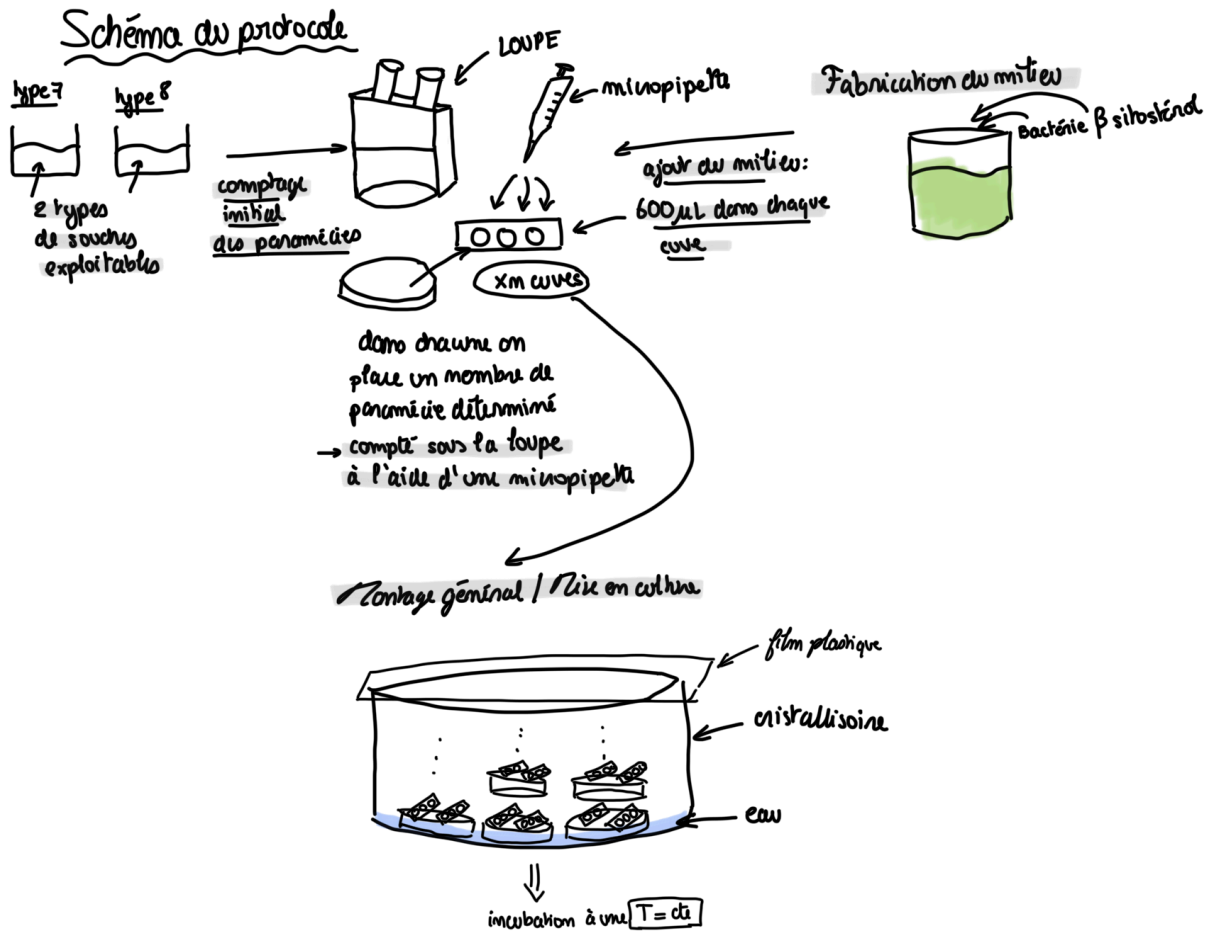 Schéma du protocole
type 7
type 8
2 types
de souches
exploitables
comptage
initial
des paramécies
LOUPE
micropipette
ajout du milieu:
600 µL dans chaque
cuve
Fabrication du milieu
Bactérie
β sitostérol
xn cuves
dans chacune on
place un nombre de
paramécie déterminé
→ compté sous la loupe
à l'aide d'une micropipette
Montage général / Mise en culture
film plastique
cristallisoire
eau
incubation à une T = cte